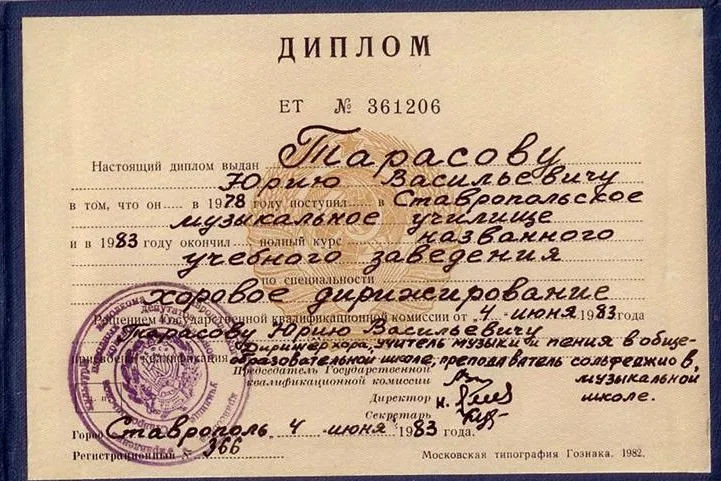 ДИПЛОМ
ЕТ № 361206
Настоящий диплом выдан Тарасову
Юрию Васильевичу
в том, что он в 1978 году поступил в Ставропольское
музыкальное училище
и в 1983 году окончил полный курс названного
учебного заведения
по специальности
хоровое дирижирование
Решением Государственной квалификационной комиссии от "4" июня 1983 года
Тарасову Юрию Васильевичу
присвоена квалификация Дирижер хора, учитель музыки и пения в обще-
образовательной школе, преподаватель сольфеджио в
музыкальной
школе.
Председатель Государственной
квалификационной комиссии
Директор
Секретарь
Город Ставрополь, 4 июня 1983 года.
Регистрационный № 366
Московская типография Гознака. 1982.